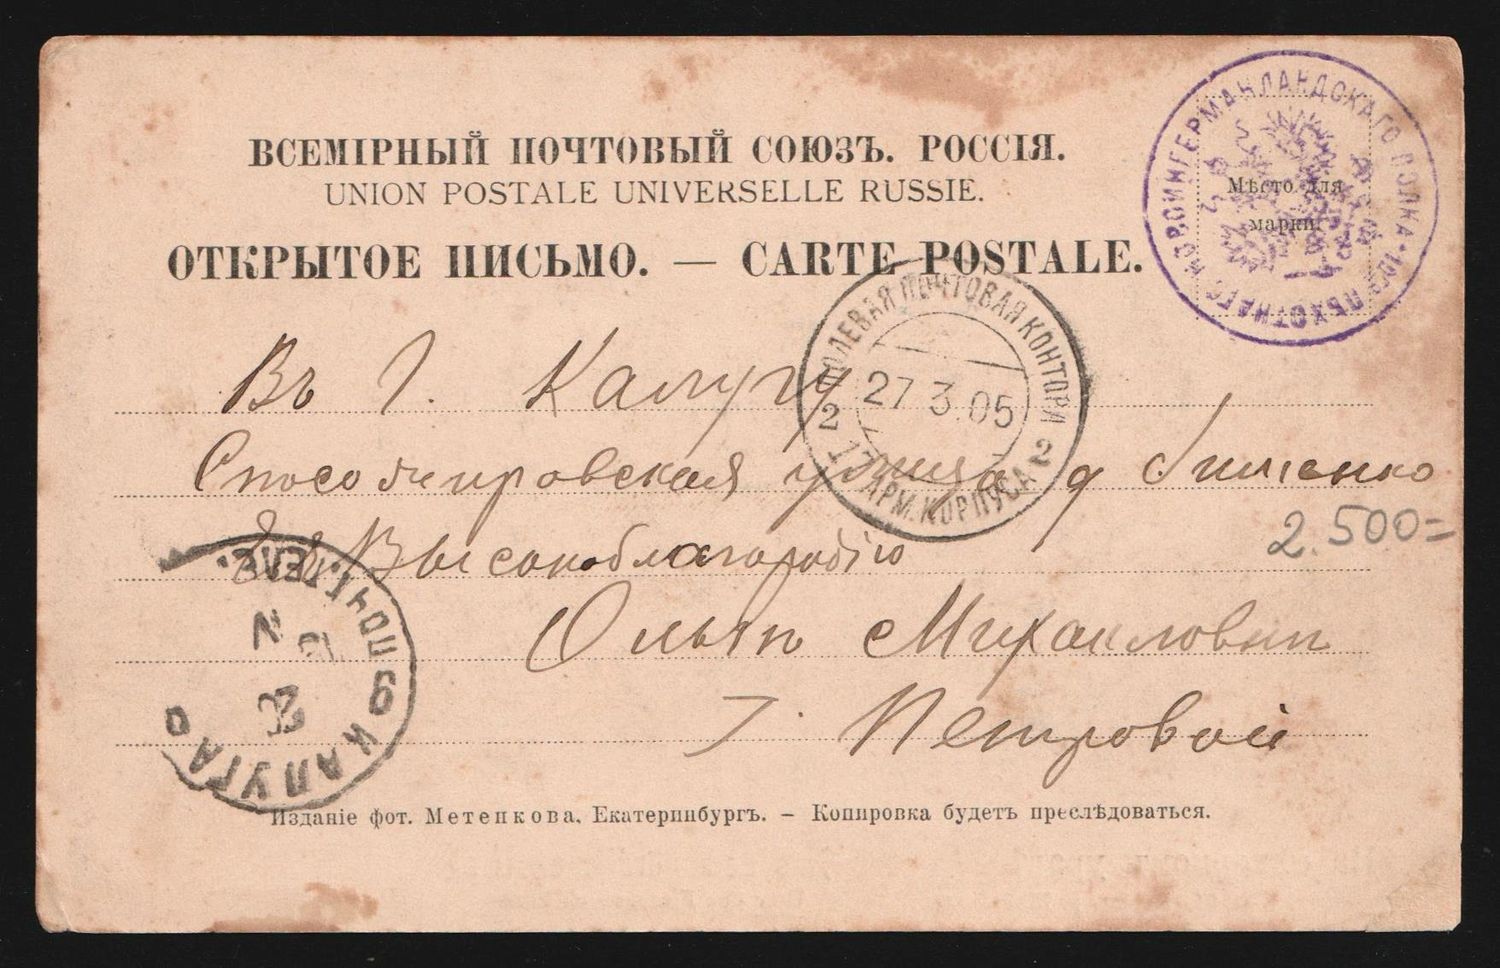 ВСЕМІРНЫЙ ПОЧТОВЫЙ СОЮЗЪ. РОССІЯ.
UNION POSTALE UNIVERSELLE RUSSIE.
ОТКРЫТОЕ ПИСЬМО. — CARTE POSTALE.
НОВОИНГЕРМАНЛАНДСКАГО ПОЛКА • 10го ПѢХОТНАГО
Мѣсто для
марки
ПОЛЕВАЯ ПОЧТОВАЯ КОНТОРА
2 27 3.05 2
17 АРМ. КОРПУСА
Въ г. Калугу
улица д
2.500=
Высокоблагородію
Ольгѣ Михаиловнѣ
Г. Петровой
КАЛУГА ПОЧТ.ТЕЛ.
Изданіе фот. Метенкова, Екатеринбургъ. — Копировка будетъ преслѣдоваться.